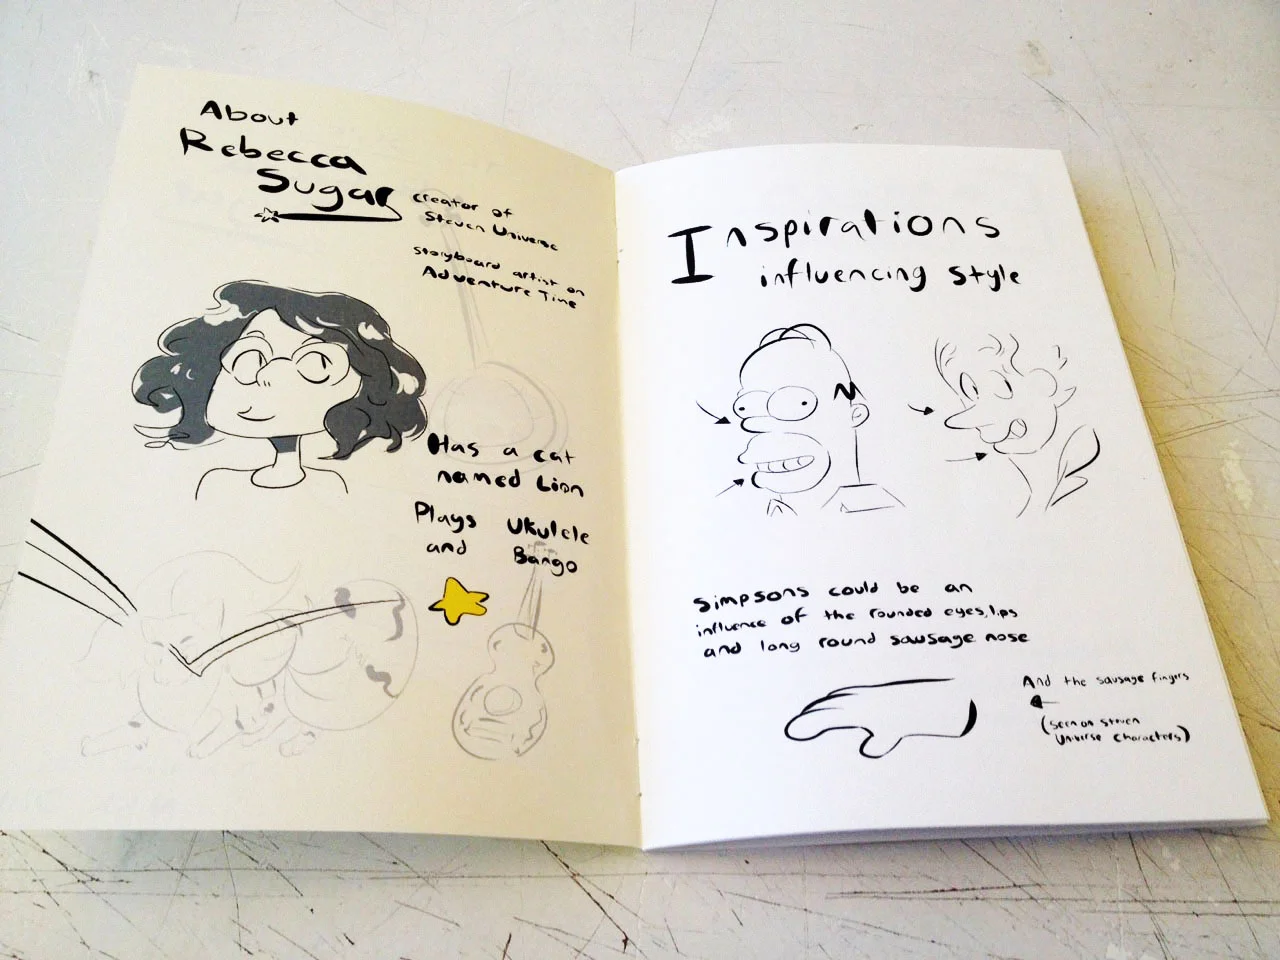 About
Rebecca
Sugar
creator of
Steven Universe
storyboard artist on
Adventure Time
Has a cat
named Lion
Plays Ukulele
and Bango
Inspirations
influencing style
Simpsons could be an
influence of the rounded eyes, lips
and long round sausage nose
And the sausage fingers
(seen on Steven
Universe characters)